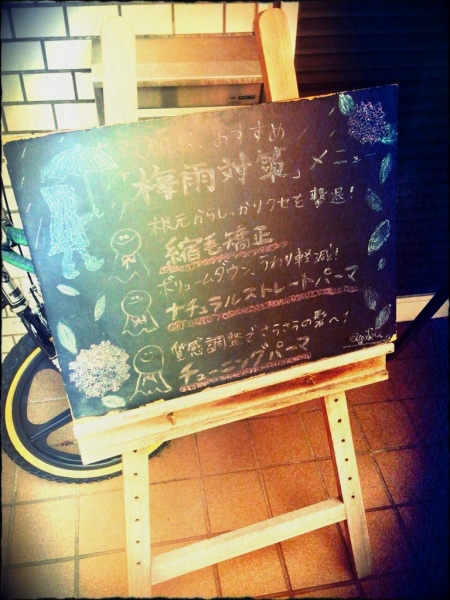 おすすめ
「梅雨対策」メニュー
根元からしっかりクセを撃退!
縮毛矯正
ボリュームダウン、うねり軽減!!
ナチュラルストレートパーマ
質感調整でさらさらの髪へ!
チューニングパーマ